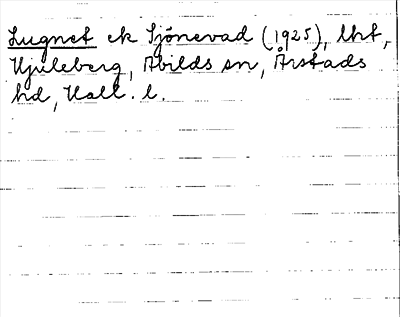 Lugnet ek Sjönevad (1925), lht,
Hjuleberg, Abilds sn, Årstads
hd, Hall. l.